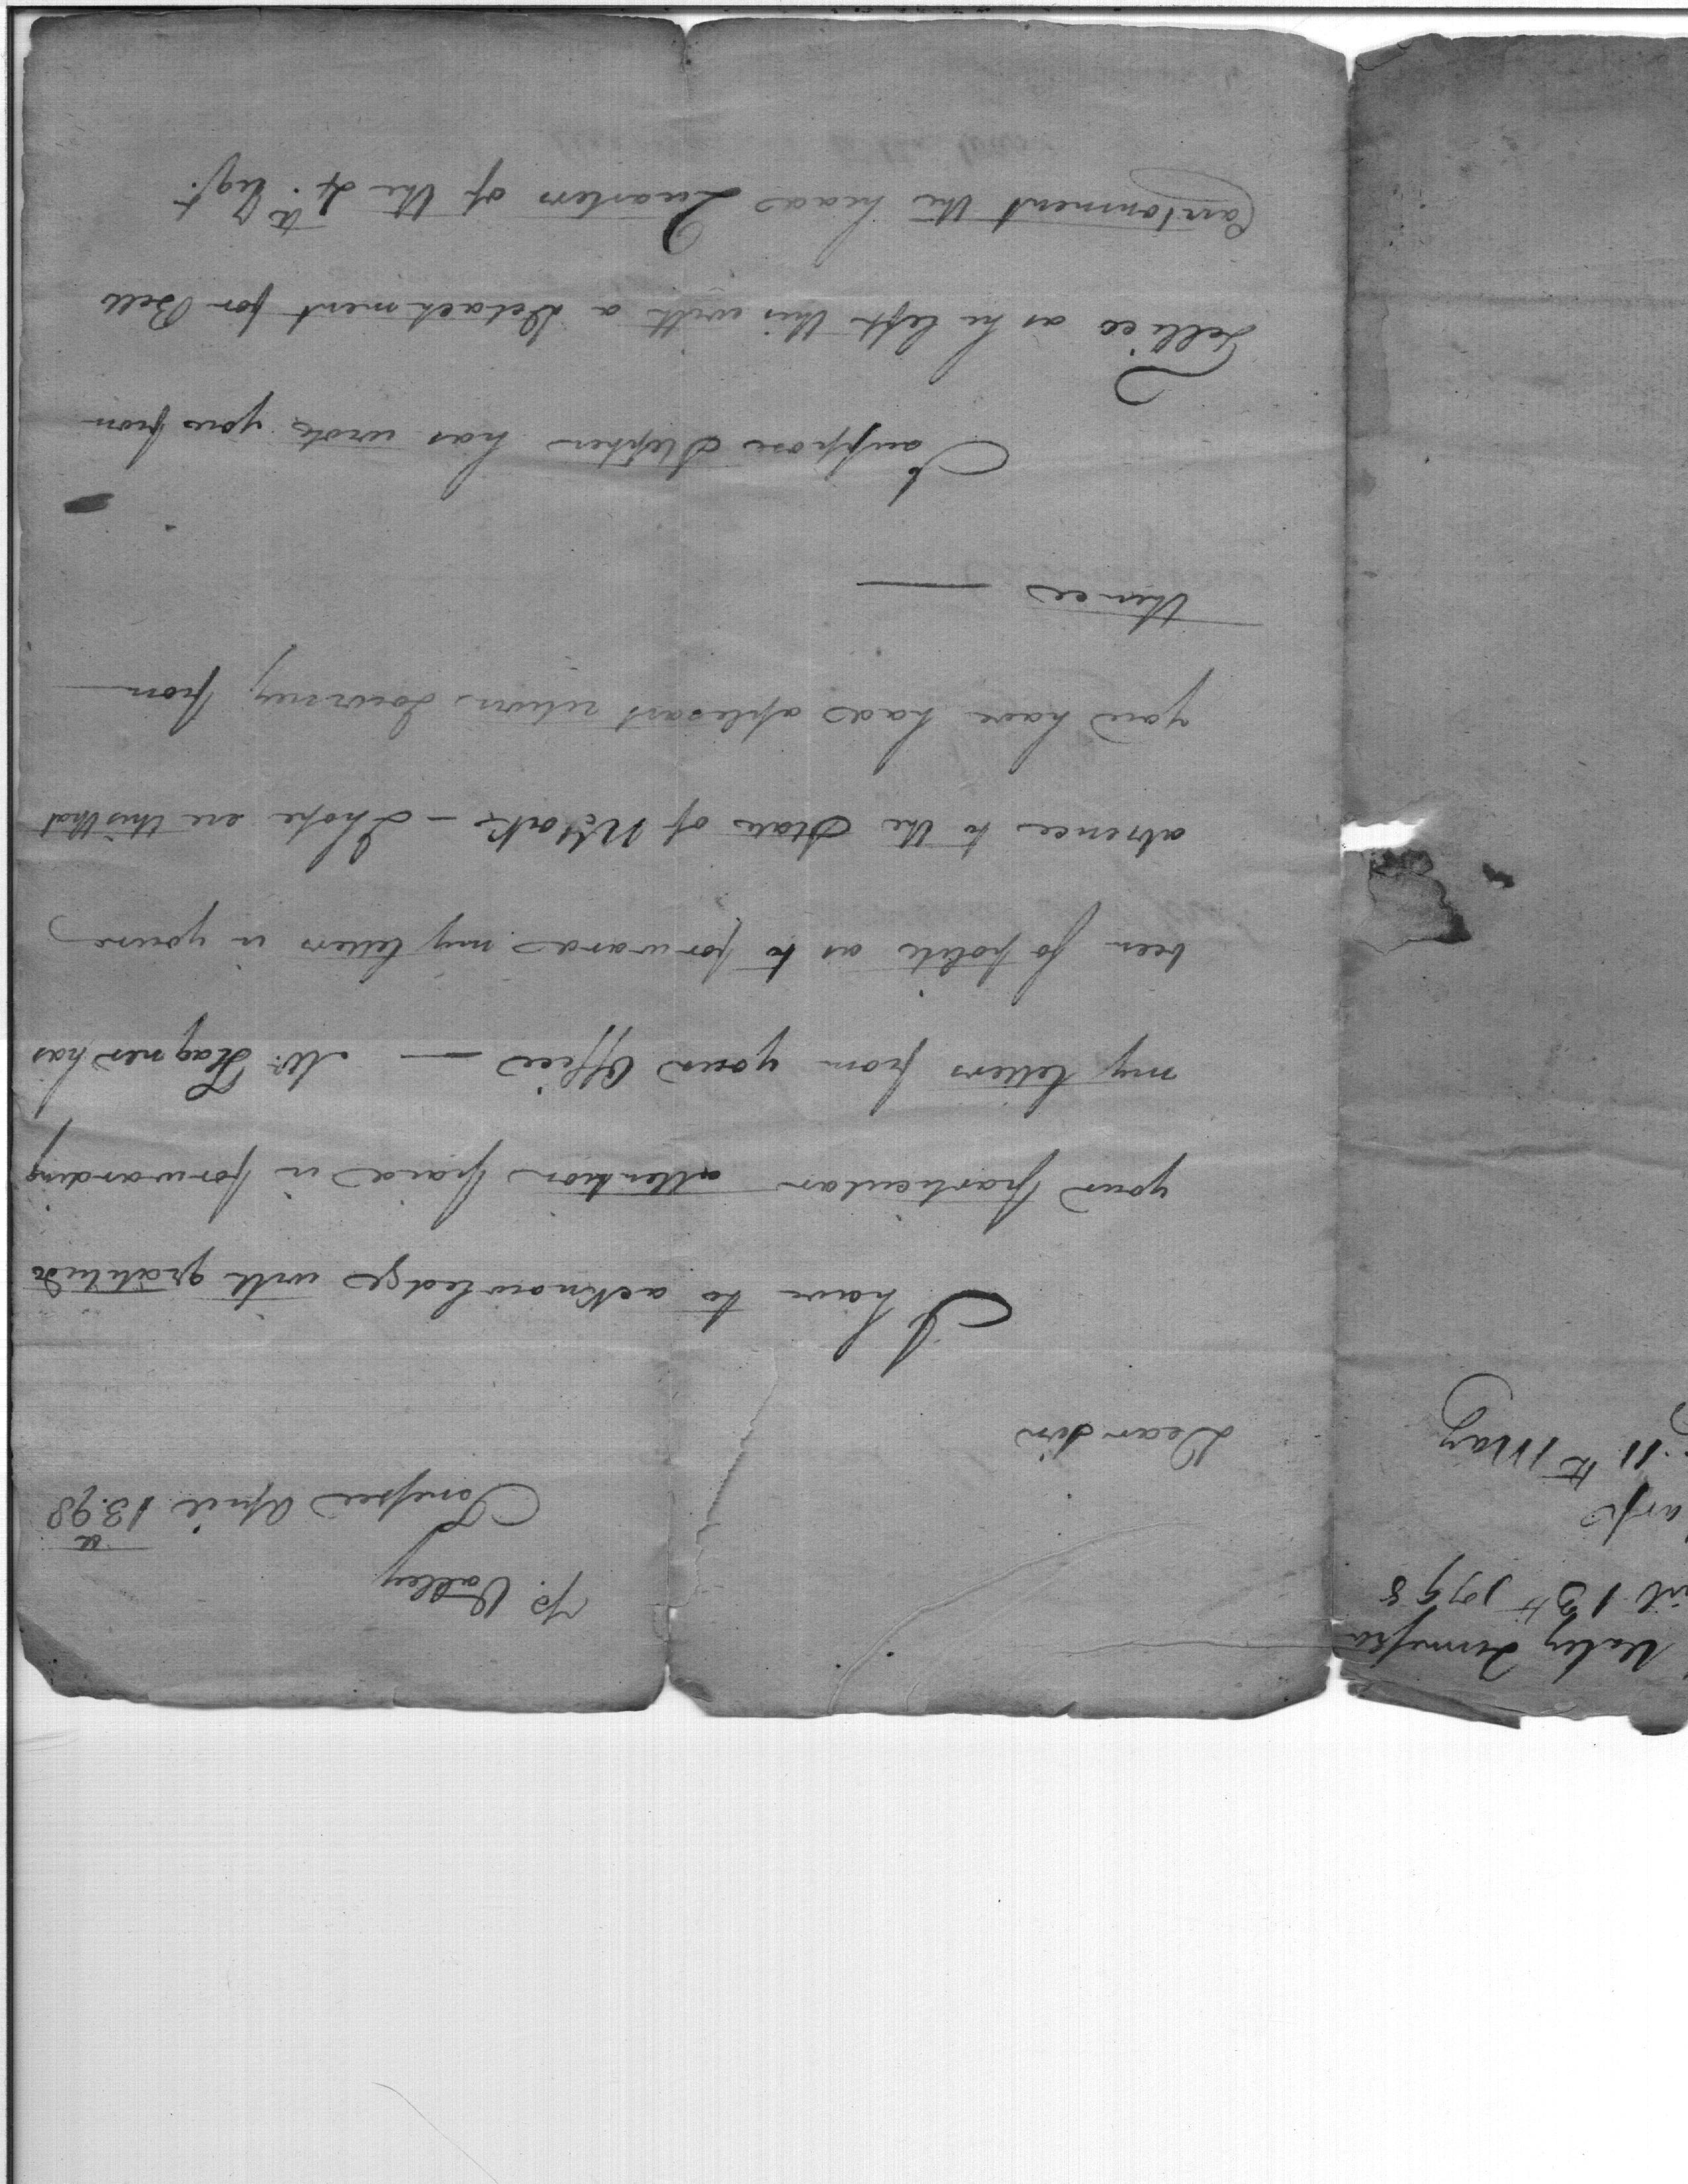 P. Valley
Tenessee April 13th 98
Dear Sir
I have to acknowledge with gratitude
your particular attention paid in forwarding
my letters from your Office — Mr. Hagner has
been so polite as to forward my letters in youre
absence to the State of NYork – I hope ere this that
you have had apleasant return Journey from
thence —
I suppose Stephen has wrote you from
Tellico as he left this with a detachment for Bell
Cantonment the head Quarters of the 4th Regt.
Valey Tennessee
13th 1798
11th May